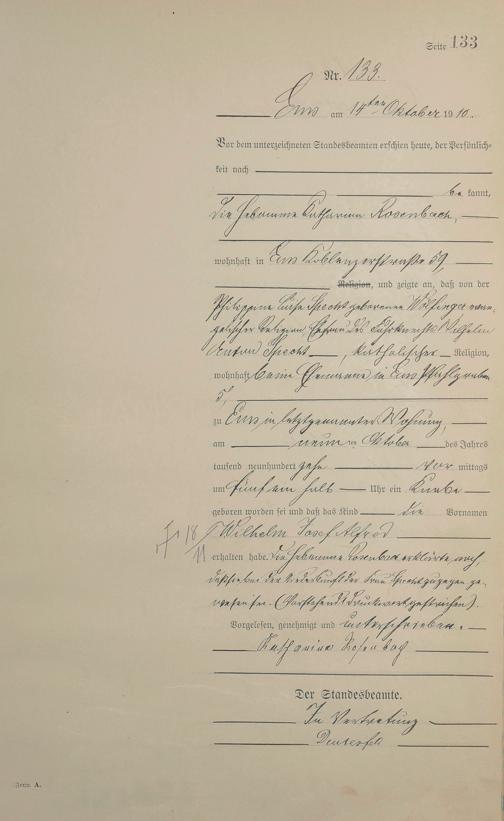 Seite 133
Nr. 133.
Ems am 14ten Oktober 1910.
Vor dem unterzeichneten Standesbeamten erschien heute, der Persönlich-
keit nach
be kannt,
die Hebamme Katharina Rosenbach,
wohnhaft in Ems Koblenzerstraße 59,
Religion, und zeigte an, daß von der
Philippine Luise Specht geborenen evan-
gelischer Religion, Ehefrau des Wilhelm
Anton Specht, katholischer Religion,
wohnhaft beim Ehemanne in Ems
5,
zu Ems in letztgenannter Wohnung,
am neunten Oktober des Jahres
tausend neunhundert zehn vor mittags
um fünf ein halb Uhr ein Knabe
geboren worden sei und daß das Kind die Vornamen
Wilhelm Josef Alfred
erhalten habe. Die Hebamme Rosenbach erklärte noch,
daß sie bei der Niederkunft der Frau Specht zugegen ge-
wesen sei. (Vorstehend 1 Druckwort gestrichen).
Vorgelesen, genehmigt und unterschrieben.
Katharina Rosenbach
Der Standesbeamte.
In Vertretung
Form. A.